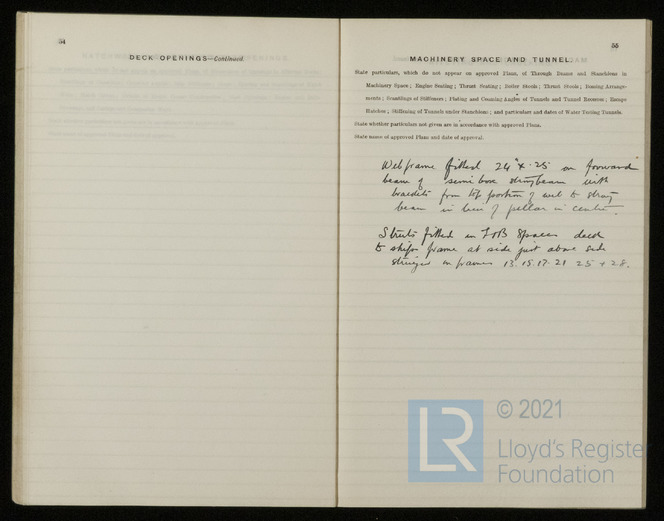 54
DECK OPENINGS—Continued.
55
MACHINERY SPACE AND TUNNEL.
State particulars, which do not appear on approved Plans, of Through Beams and Stanchions in
Machinery Space; Engine Seating; Thrust Seating; Boiler Stools; Thrust Stools; Bossing Arrange-
ments; Scantlings of Stiffeners; Plating and Coaming Angles of Tunnels and Tunnel Recesses; Escape
Hatches; Stiffening of Tunnels under Stanchions; and particulars and dates of Water Testing Tunnels.
State whether particulars not given are in accordance with approved Plans.
State name of approved Plans and date of approval.
Web frame fitted 24" x .25 on forward
beam of semi box strong beam with
brackets from top portion of web to strong
beam in lieu of pillar in centre.
Struts fitted in Spaces deck
to ships frame at side just above side
stringer on frames 13. 15. 17. 21 25 + 28.
LR
© 2021
Lloyd's Register
Foundation